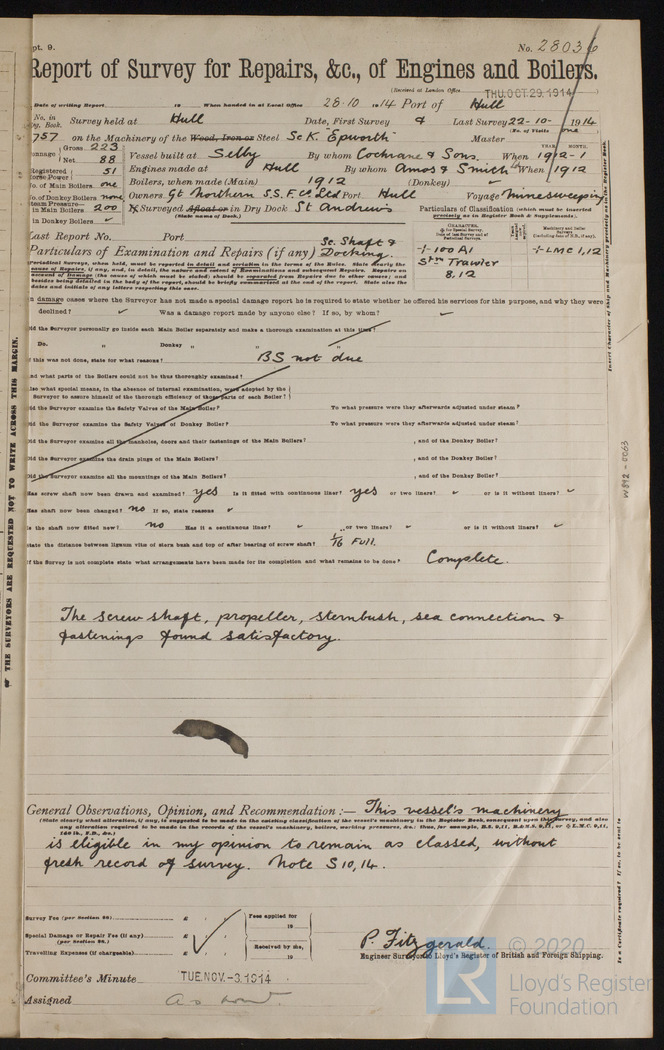 pt. 9.
No. 28036
Report of Survey for Repairs, &c., of Engines and Boilers.
(Received at London Office THU. OCT. 29. 1914)
Date of writing Report 19 When handed in at Local Office 28.10 1914 Port of Hull
No. in Survey held at Hull Date, First Survey & Last Survey 22-10- 1914
Reg. Book. (No. of Visits one)
757 on the Machinery of the Wood, Iron or Steel Sc K. "Epworth" Master
Tonnage Gross 223
Net 88 Vessel built at Selby By whom Cochrane & Sons. When 1912-1
YEAR. MONTH.
Registered Horse Power 51 Engines made at Hull By whom Amos & Smith Ld When 1912
No. of Main Boilers one Boilers, when made (Main) 1912 (Donkey)
No. of Donkey Boilers none Owners Gt Northern S.S.F. Co Ltd Port Hull Voyage Minesweeping
Steam Pressure—
in Main Boilers 200 If Surveyed Afloat or in Dry Dock St Andrew's
(State name of Dock.)
in Donkey Boilers
Particulars of Classification (which must be inserted
precisely as in Register Book & Supplements).
Last Report No. Port
Particulars of Examination and Repairs (if any) Sc. Shaft & Docking.
+ 100 A1
Stm Trawler
8.12
+ LMC 1,12
(Periodical Surveys, when held, must be reported in detail and seriatim in the terms of the Rules. State clearly the
cause of Repairs, if any, and, in detail, the nature and extent of Examinations and subsequent Repairs. Repairs on
account of Damage (the cause of which must be stated) should be separated from Repairs due to other causes; and
besides being detailed in the body of the report, should be briefly summarized at the end of the report. State also the
dates and initials of any letters respecting this case.
In damage cases where the Surveyor has not made a special damage report he is required to state whether he offered his services for this purpose, and why they were
declined? Was a damage report made by anyone else? If so, by whom?
Did the Surveyor personally go inside each Main Boiler separately and make a thorough examination at this time?
Do. „ Donkey „ „ „
If this was not done, state for what reasons? BS not due
And what parts of the Boilers could not be thus thoroughly examined?
Also what special means, in the absence of internal examination, were adopted by the
Surveyor to assure himself of the thorough efficiency of those parts of each Boiler?
Did the Surveyor examine the Safety Valves of the Main Boiler? To what pressure were they afterwards adjusted under steam?
Did the Surveyor examine the Safety Valves of Donkey Boiler? To what pressure were they afterwards adjusted under steam?
Did the Surveyor examine all the manholes, doors and their fastenings of the Main Boilers? , and of the Donkey Boiler?
Did the Surveyor examine the drain plugs of the Main Boilers? , and of the Donkey Boiler?
Did the Surveyor examine all the mountings of the Main Boilers? , and of the Donkey Boiler?
Has screw shaft now been drawn and examined? yes Is it fitted with continuous liner? yes or two liners? or is it without liners?
Has shaft now been changed? no If so, state reasons
Is the shaft now fitted new? no Has it a continuous liner? or two liners? or is it without liners?
State the distance between lignum vitæ of stern bush and top of after bearing of screw shaft? 1/16 Full.
If the Survey is not complete state what arrangements have been made for its completion and what remains to be done? Complete.
The screw shaft, propeller, sternbush, sea connections &
fastenings found satisfactory.
General Observations, Opinion, and Recommendation :— This vessel's machinery
(State clearly what alteration, if any, is suggested to be made in the existing classification of the vessel's machinery in the Register Book, consequent upon this survey, and also
any alteration required to be made in the records of the vessel's machinery, boilers, working pressures, &c.: thus, for example, B.S. 9,11, B.&M.S. 9,11, or + L.M.C. 9,11,
160 lb., F.D., &c.)
is eligible in my opinion to remain as classed, without
fresh record of survey. Note S 10,14.
Survey Fee (per Section 28) £ : : Fees applied for
19
Special Damage or Repair Fee (if any) £ : :
(per Section 28.)
Travelling Expenses (if chargeable) £ : : Received by me,
19
P. Fitzgerald.
Engineer Surveyor to Lloyd's Register of British and Foreign Shipping.
Committee's Minute TUE. NOV. -3. 1914
Assigned As now
OF THE SURVEYORS ARE REQUESTED NOT TO WRITE ACROSS THIS MARGIN.
W892-0063
© 2020
LR
Lloyd's Register
Foundation